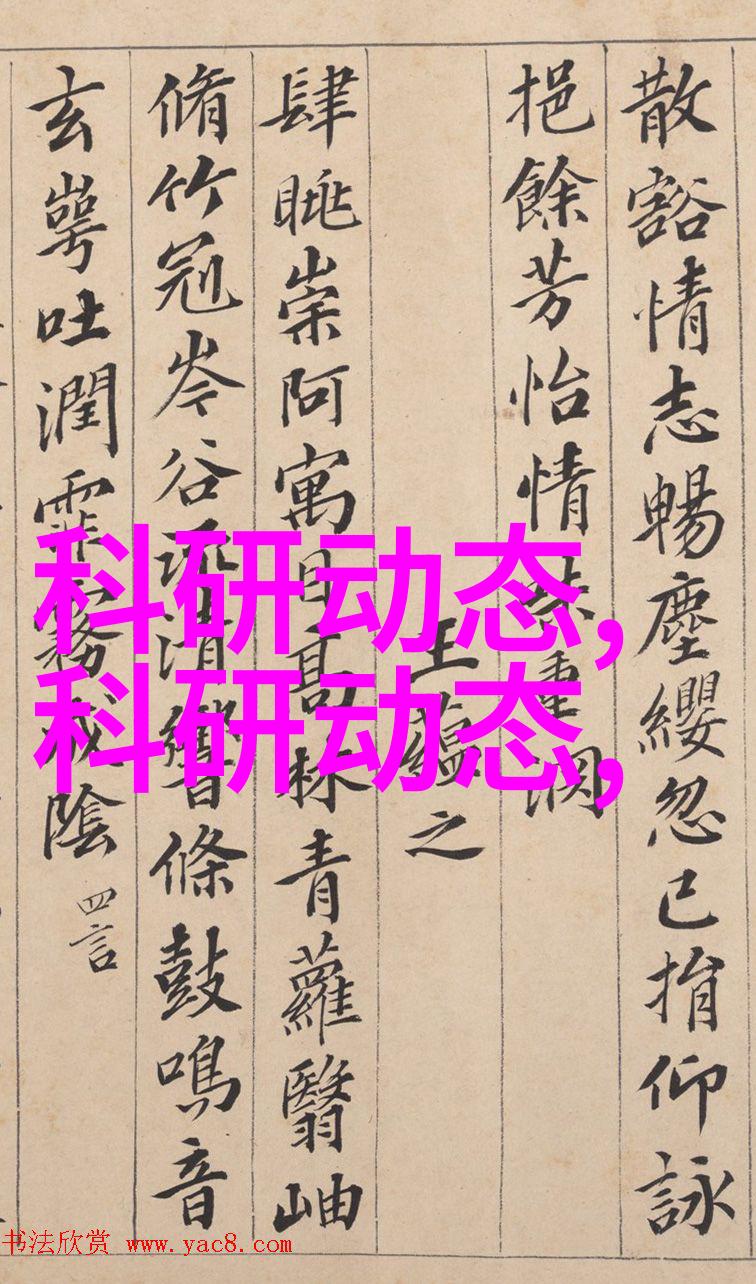 散豁情志暢塵纓忽已捐仰詠
挹餘芳怡情味重淵
王蘊之
肆眺崇阿寓目高林青蘿翳岫
脩竹冠岑谷流清響條鼓鳴音
玄崿吐潤霏霧成陰 四言
科研动态,
科研动态,
书法欣赏 www.yac8.com